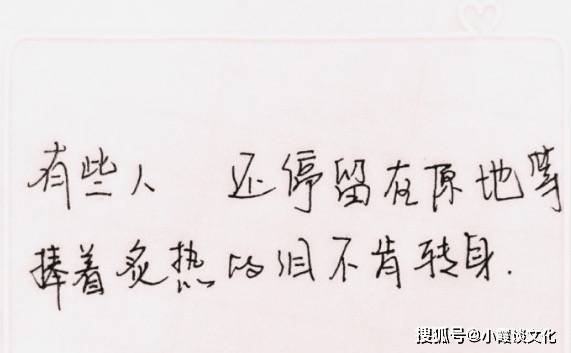 有些人 还停留在原地等
捧着炙热的泪不肯转身.
搜狐号@小霞谈文化